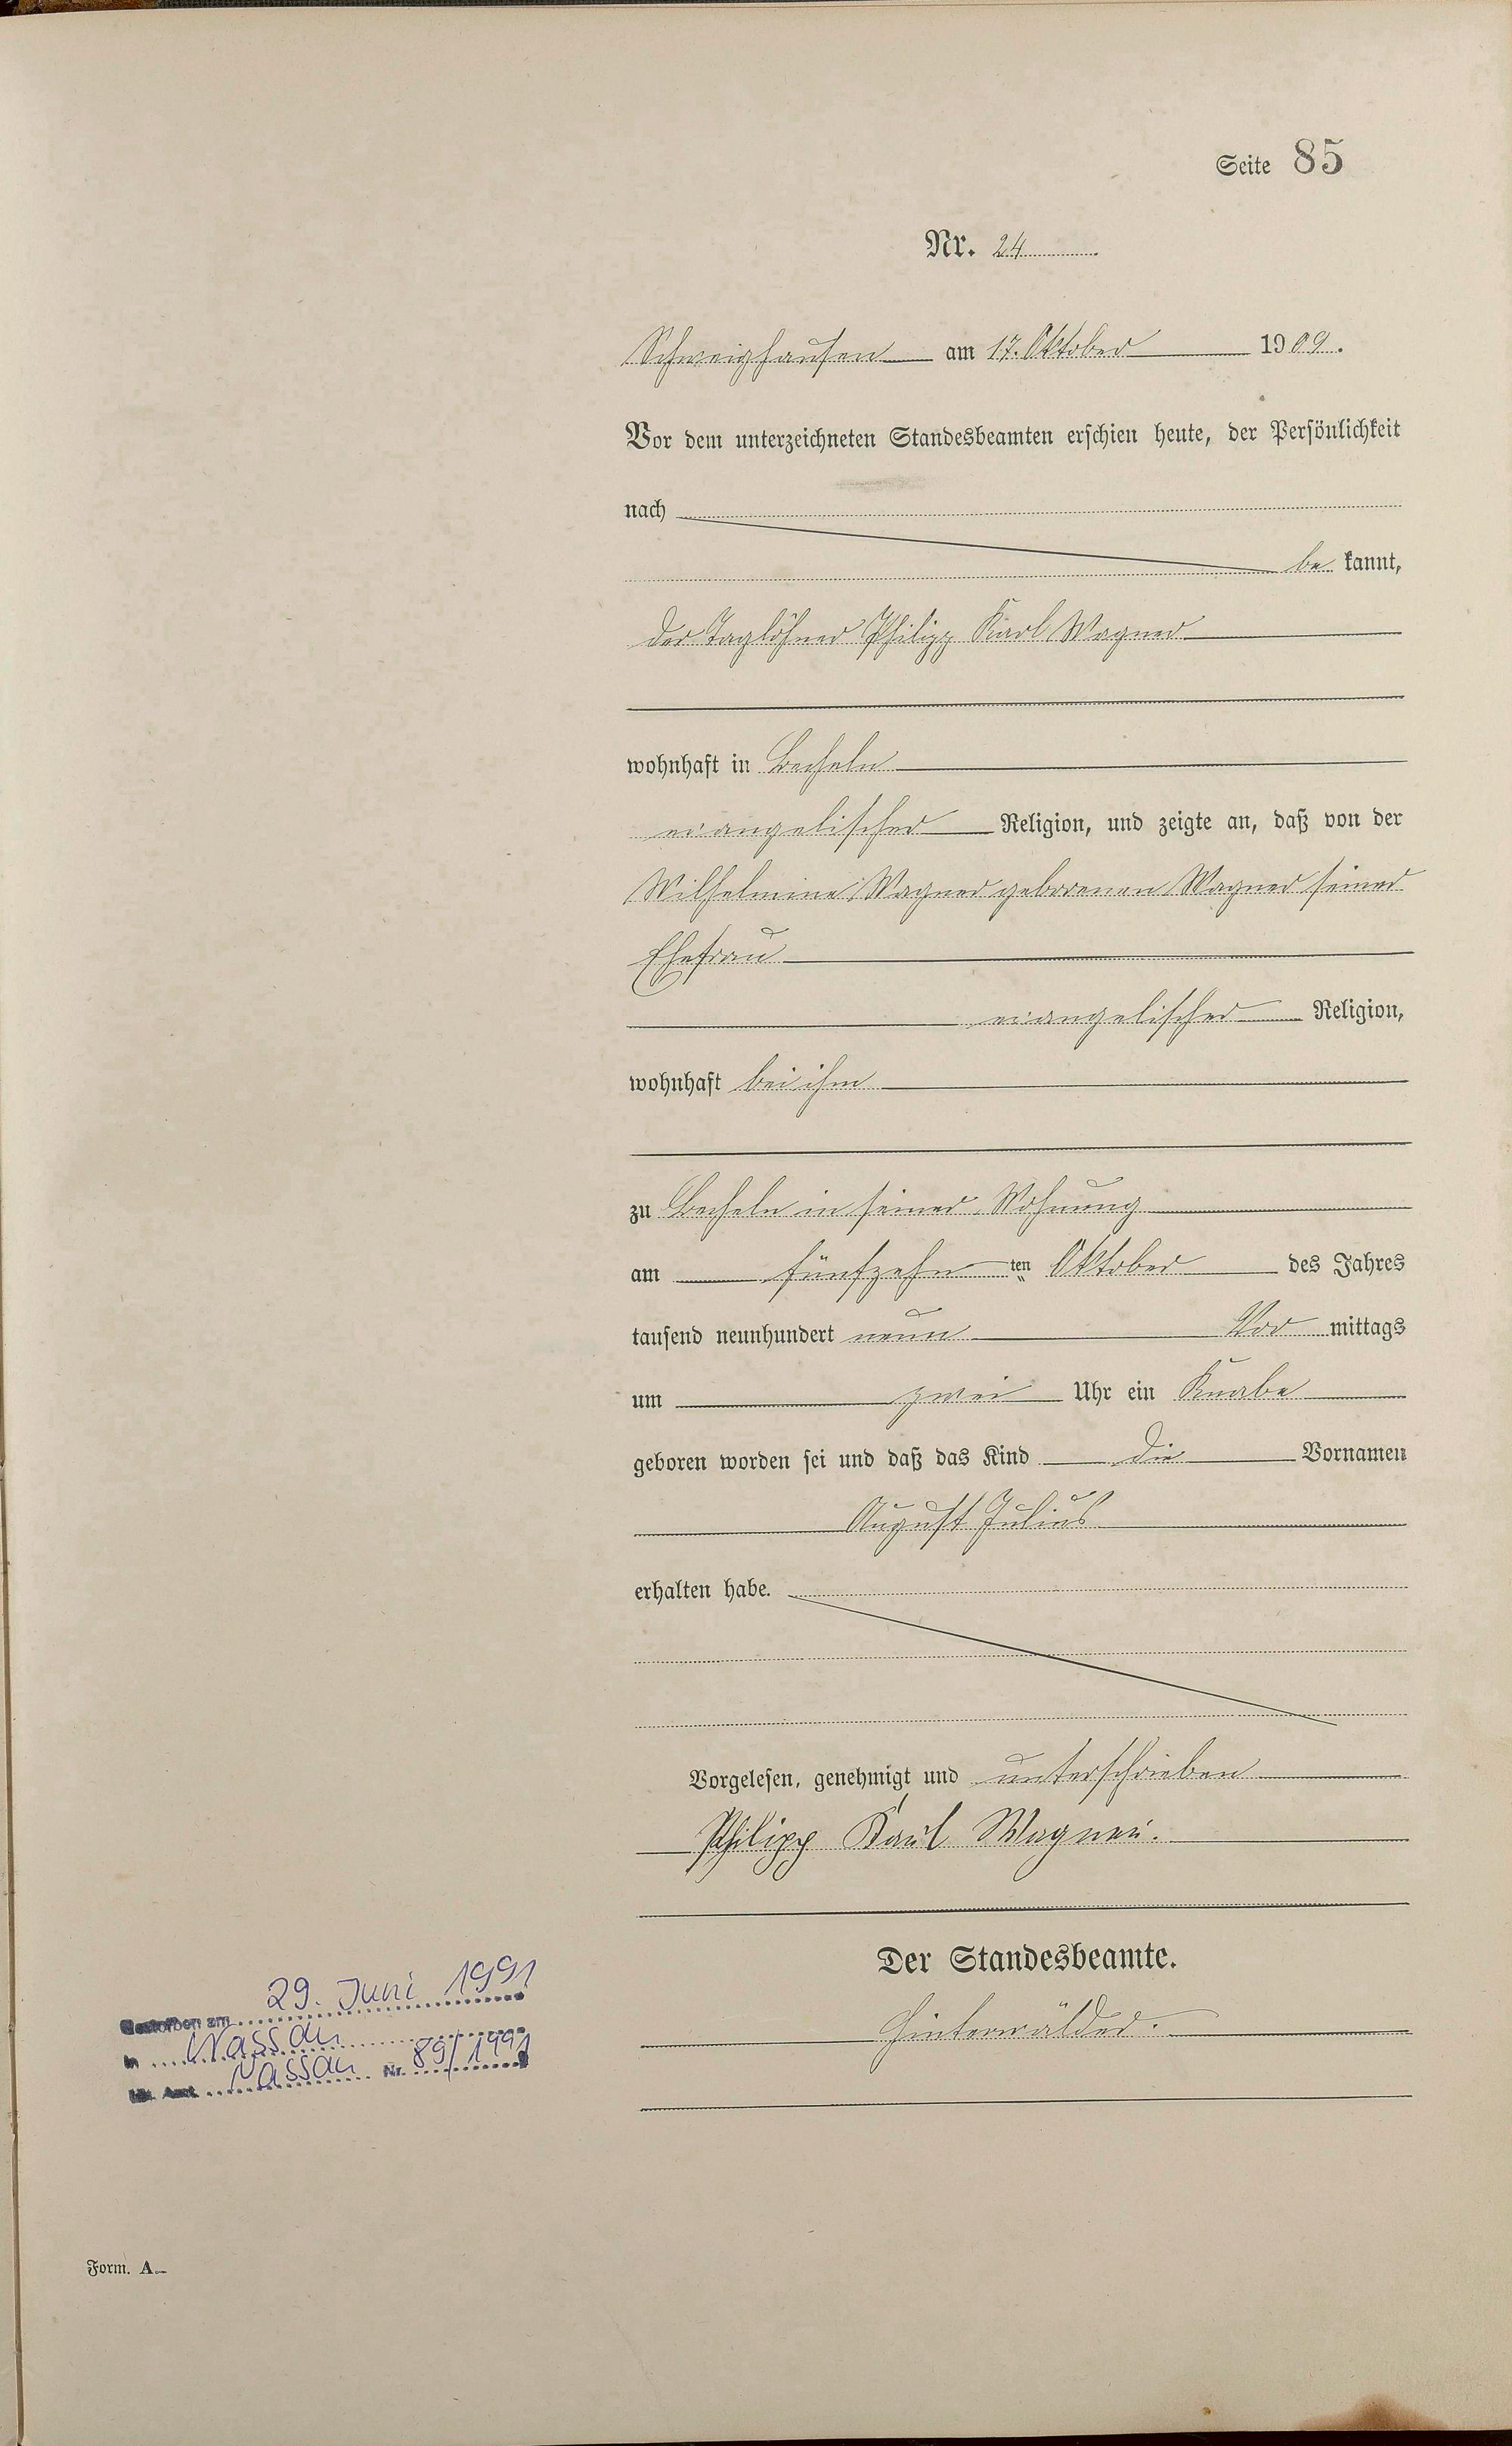 Seite 85
Nr. 24
Schweighausen am 17. Oktober 1909.
Vor dem unterzeichneten Standesbeamten erschien heute, der Persönlichkeit
nach
be kannt,
der Taglöhner Philipp Karl Wagner
wohnhaft in Becheln
evangelischer Religion, und zeigte an, daß von der
Wilhelmine Wagner geborenen Wagner seiner
Ehefrau
evangelischer Religion,
wohnhaft bei ihm
zu Becheln in seiner Wohnung
am fünfzehn ten Oktober des Jahres
tausend neunhundert neun Vor mittags
um zwei Uhr ein Knabe
geboren worden sei und daß das Kind die Vornamen
August Julius
erhalten habe.
Vorgelesen, genehmigt und unterschrieben
Philipp Karl Wagner.
Der Standesbeamte.
Hinterwälder.
Gestorben am 29. Juni 1991
in Nassau
Amt Nassau Nr. 89/1991
Form. A